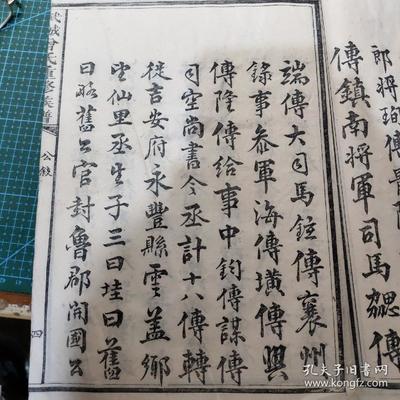 郎将珣傳
傳鎮南将軍司馬勰傳
端傳大司馬鉉傳襄州
錄事叅軍海傳璜傳興
傳隆傳給事中鈞傳謀傳
司空尚書令丞計十八傳轉
徙吉安府永豐縣雲葢鄉
望仙里丞生子三曰珪曰舊
曰略舊公官封魯郡開國公
武城曾氏重修族譜
公叙
四
孔夫子旧书网
www.kongfz.com